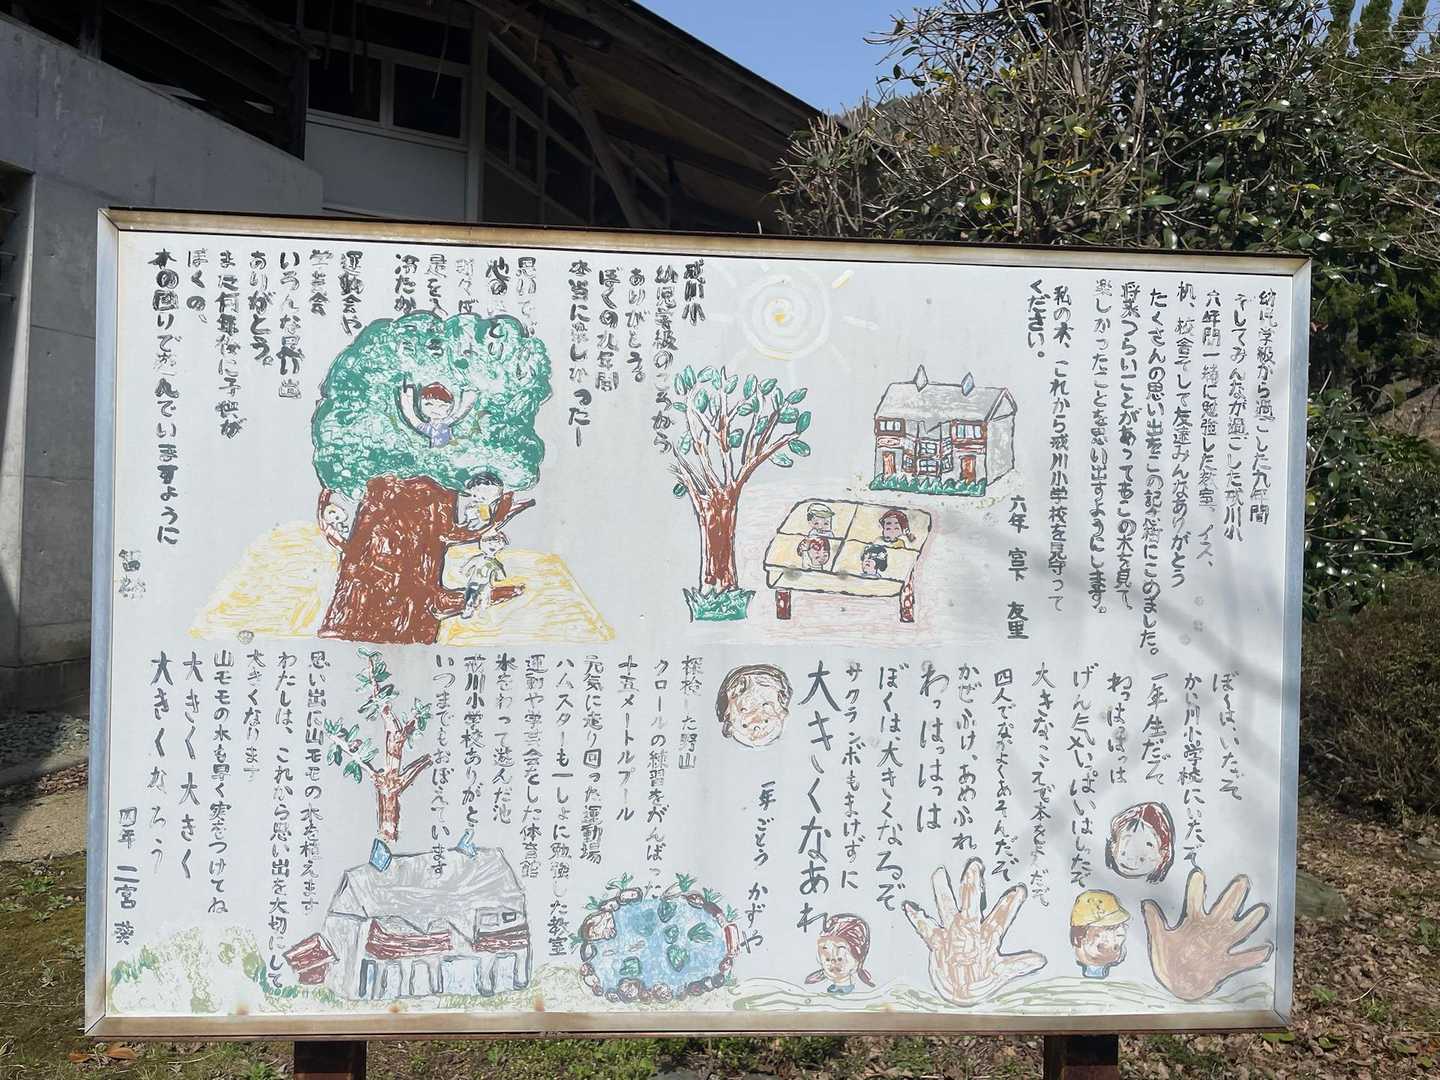 幼児学級から過ごした九年間
そしてみんなが過ごした戒川小
六年間一緒に勉強した教室、イス、
机、校舎そして友達みんなありがとう
たくさんの思い出をこの記念樹にこめました。
将来つらいことがあってもこの木を見て、
楽しかったことを思い出すようにします。
私の木、これから戒川小学校を見守って
ください。
六年 宮下 友里
戒川小
幼児学級のころから
ありがとう。
ぼくの九年間
本当に楽しかったー
思い
冷たか
運動会や
学芸会
いろんな思い出
ありがとう。
また何年後に子供が
ぼくの、
木の回りで遊んでいますように
ぼくは、いたぞ
かい川小学校にいたぞ
一年生だぞ
わっはっはっは
げん気いっぱいはしったぞ
大きなこえで本をよんだぞ
四人でなかよくあそんだぞ
かぜふけ、あめふれ
わっはっはっは
ぼくは大きくなるぞ
サクランボもまけずに
大きくなあれ
一年 ごとう かずや
探検した野山
クロールの練習をがんばった
十五メートルプール
元気に走り回った運動場
ハムスターも一しょに勉強した教室
運動や学芸会をした体育館
氷をわって遊んだ池
戒川小学校ありがとう
いつまでもおぼえています
思い出に山モモの木を植えます
わたしは、これから思い出を大切にして
大きくなります
山モモの木も早く実をつけてね
大きく大きく
大きくなろう
四年 二宮 葵